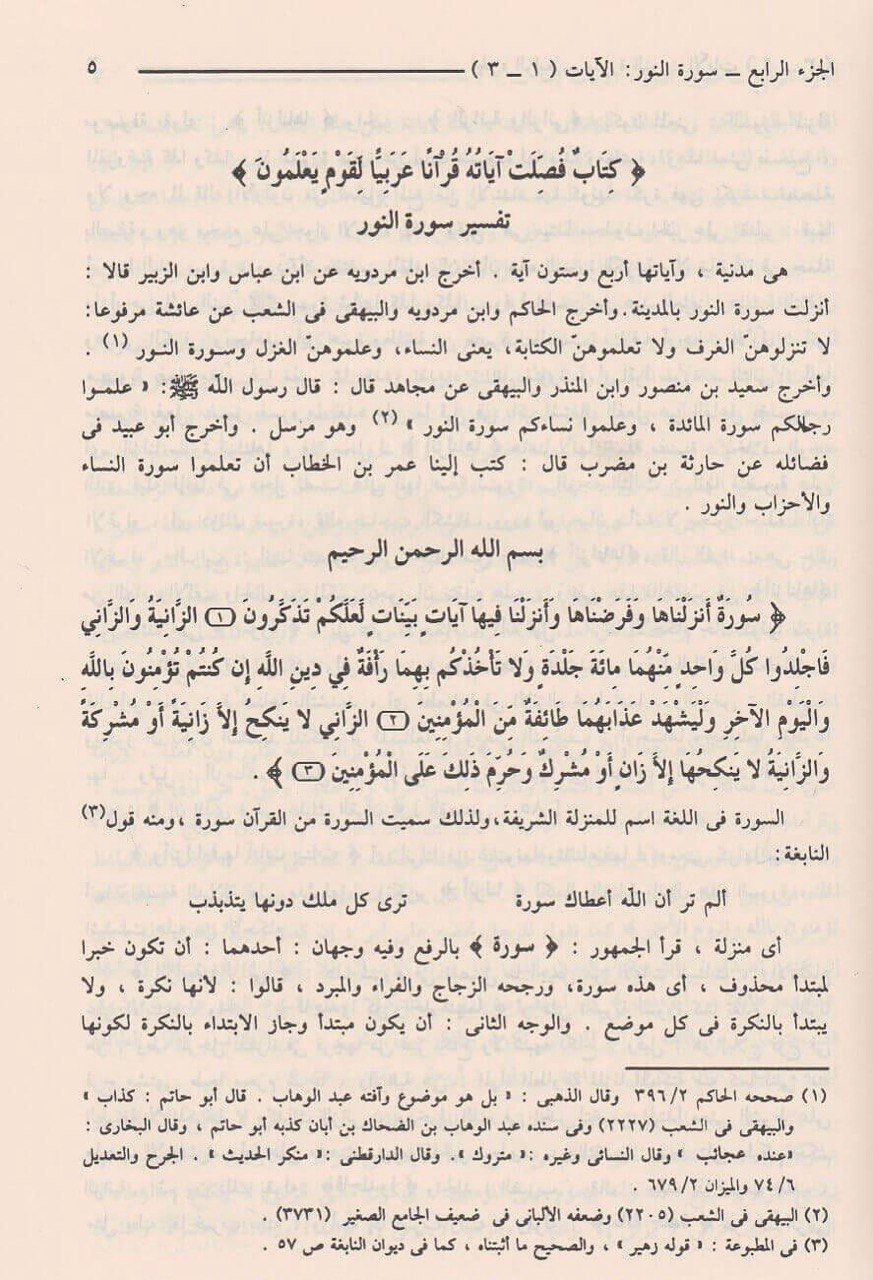 الجزء الرابع ــ سورة النور: الآيات ( ١ ــ ٣ ) ٥
﴿ كِتَابٌ فُصِّلَتْ آيَاتُهُ قُرْآنًا عَرَبِيًّا لِقَوْمٍ يَعْلَمُونَ ﴾
تفسير سورة النور
هى مدنية ، وآياتها أربع وستون آية . أخرج ابن مردويه عن ابن عباس وابن الزبير قالا :
أنزلت سورة النور بالمدينة. وأخرج الحاكم وابن مردويه والبيهقى فى الشعب عن عائشة مرفوعا:
لا تنزلوهنّ الغرف ولا تعلموهنّ الكتابة، يعنى النساء، وعلموهنّ الغزل وسورة النور (١) .
وأخرج سعيد بن منصور وابن المنذر والبيهقى عن مجاهد قال : قال رسول الله ﷺ: « علموا
رجالكم سورة المائدة ، وعلموا نساءكم سورة النور » (٢) وهو مرسل . وأخرج أبو عبيد فى
فضائله عن حارثة بن مضرب قال : كتب إلينا عمر بن الخطاب أن تعلموا سورة النساء
والأحزاب والنور .
بسم الله الرحمن الرحيم
﴿ سُورَةٌ أَنزَلْنَاهَا وَفَرَضْنَاهَا وَأَنزَلْنَا فِيهَا آيَاتٍ بَيِّنَاتٍ لَّعَلَّكُمْ تَذَكَّرُونَ (١) الزَّانِيَةُ وَالزَّانِي
فَاجْلِدُوا كُلَّ وَاحِدٍ مِّنْهُمَا مِائَةَ جَلْدَةٍ وَلَا تَأْخُذْكُم بِهِمَا رَأْفَةٌ فِي دِينِ اللَّهِ إِن كُنتُمْ تُؤْمِنُونَ بِاللَّهِ
وَالْيَوْمِ الْآخِرِ وَلْيَشْهَدْ عَذَابَهُمَا طَائِفَةٌ مِّنَ الْمُؤْمِنِينَ (٢) الزَّانِي لا يَنكِحُ إِلاَّ زَانِيَةً أَوْ مُشْرِكَةً
وَالزَّانِيَةُ لا يَنكِحُهَا إِلاَّ زَانٍ أَوْ مُشْرِكٌ وَحُرِّمَ ذَلِكَ عَلَى الْمُؤْمِنِينَ (٣) ﴾ .
السورة فى اللغة اسم للمنزلة الشريفة، ولذلك سميت السورة من القرآن سورة ، ومنه قول(٣)
النابغة:
ألم تر أن الله أعطاك سورة ترى كل ملك دونها يتذبذب
أى منزلة ، قرأ الجمهور : ﴿ سورة ﴾ بالرفع وفيه وجهان : أحدهما : أن تكون خبرا
لمبتدأ محذوف ، أى هذه سورة، ورجحه الزجاج والفراء والمبرد ، قالوا : لأنها نكرة ، ولا
يبتدأ بالنكرة فى كل موضع . والوجه الثانى : أن يكون مبتدأ وجاز الابتداء بالنكرة لكونها
(١) صححه الحاكم ٣٩٦/٢ وقال الذهبى : « بل هو موضوع وآفته عبد الوهاب . قال أبو حاتم : كذاب »
والبيهقى فى الشعب (٢٢٢٧) وفى سنده عبد الوهاب بن الضحاك بن أبان كذبه أبو حاتم ، وقال البخارى :
«عنده عجائب » وقال النسائى وغيره :« متروك». وقال الدارقطنى :« منكر الحديث » . الجرح والتعديل
٧٤/٦ والميزان ٦٧٩/٢ .
(٢) البيهقى فى الشعب (٢٢٠٥) وضعفه الألبانى فى ضعيف الجامع الصغير (٣٧٣١) .
(٣) فى المطبوعة : « قوله زهير » ، والصحيح ما أثبتناه ، كما فى ديوان النابغة ص ٥٧ .